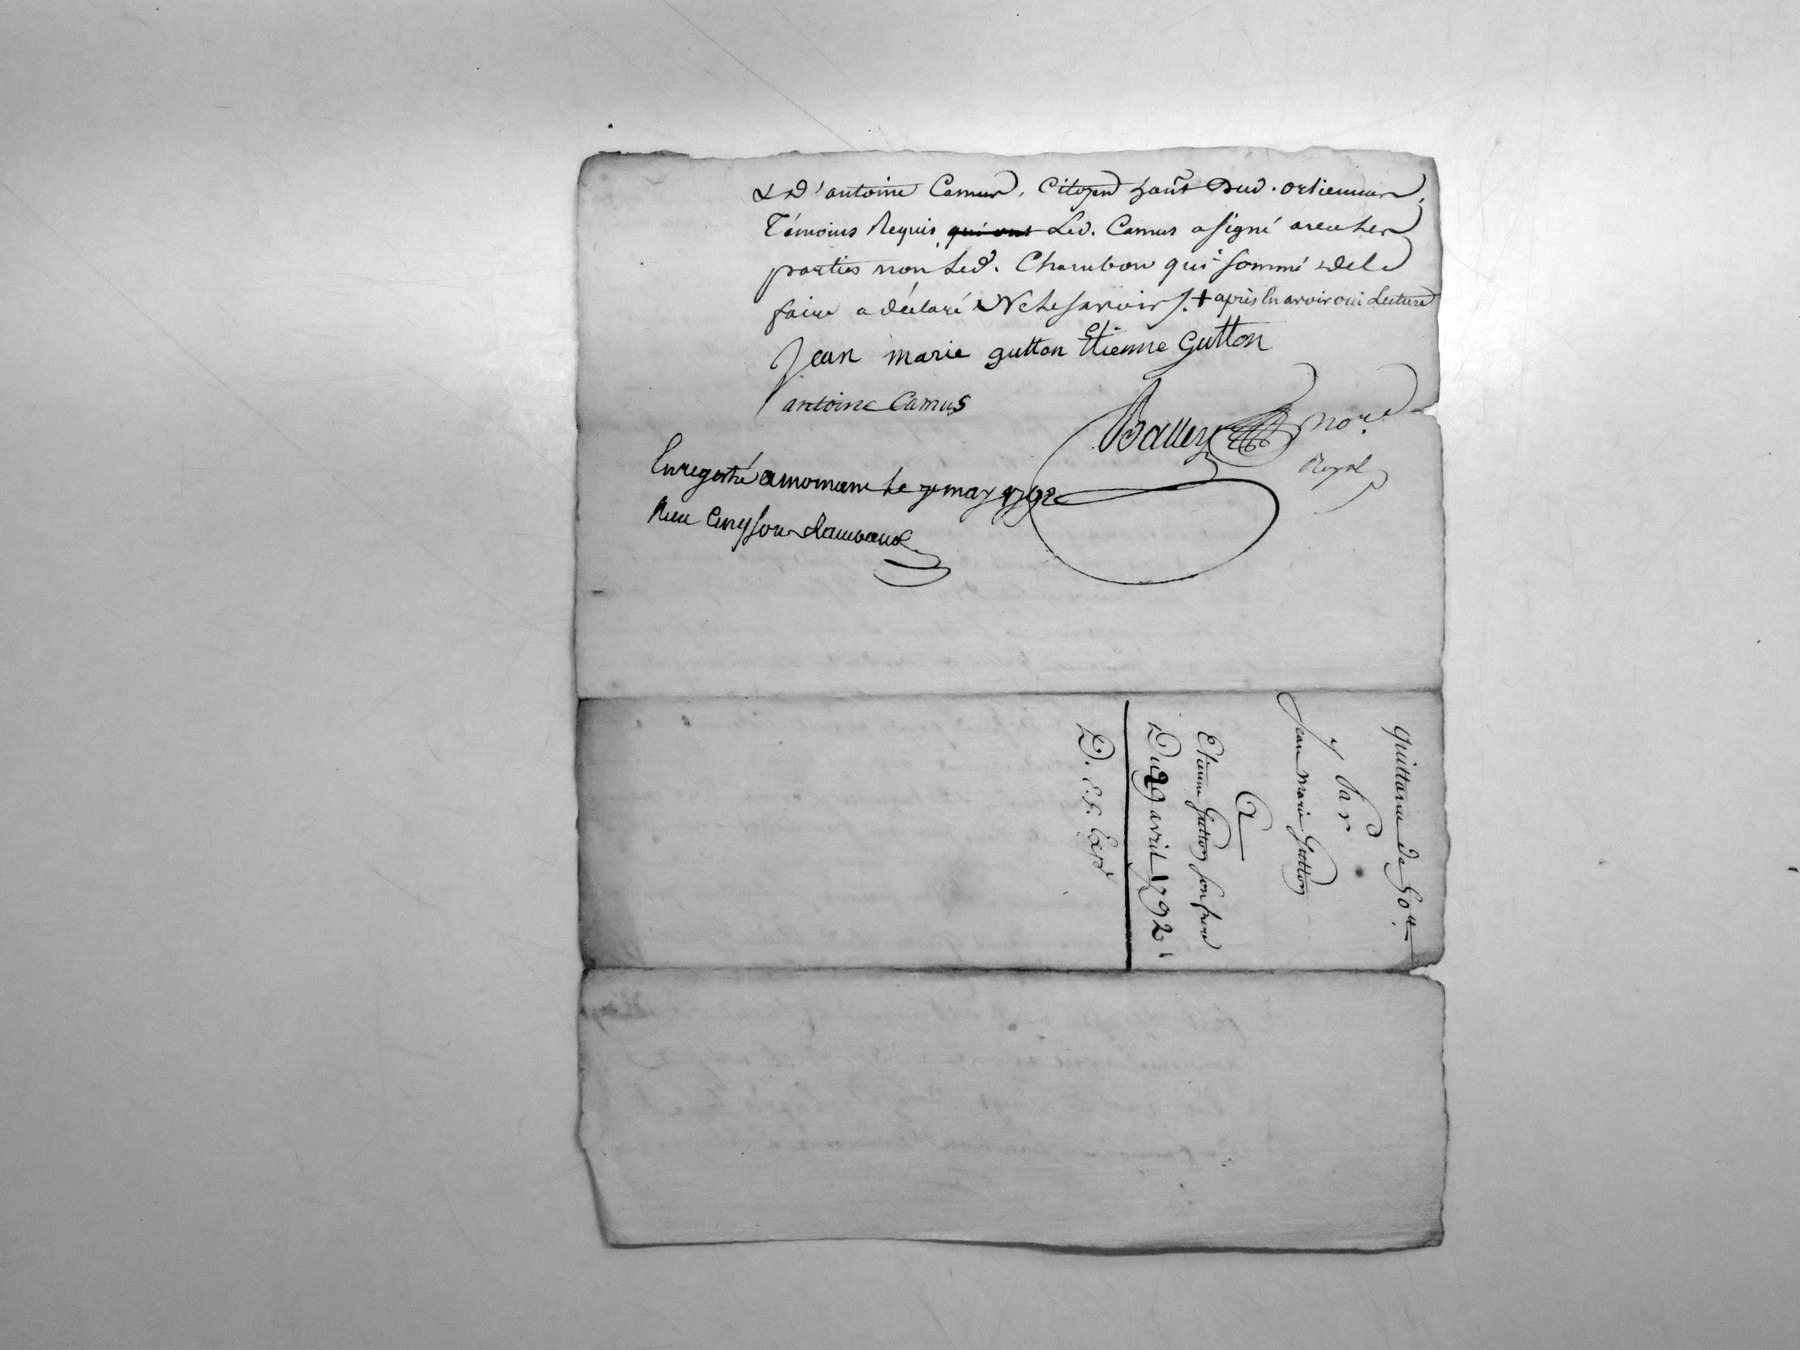 & d'antoine Camus, Citoyen hant dud. ortiennas,
Témoins Requis, qui ont Led. Camus a signé avec les
parties non Led. Chambon qui sommé de le
faire a déclaré Ne le savoir /. + après en avoir oui Lecture
Jean marie gutton Etienne Gutton
antoine Camus
Balley no.re
Royal
Enregistré a mornant le 7e may 1792
Reçu cinq sous
quittance de 50tt
Par
Jean Marie Gutton
A
Etienne Gutton son frere
Du 29 avril 1792.
D. E. f. Exp.